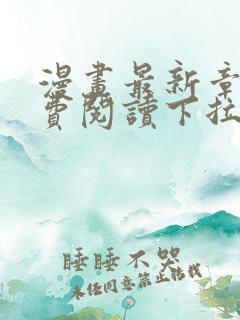 漫畫最新章
費閱讀下拉
睡睡不哭
未任同意禁止轉載